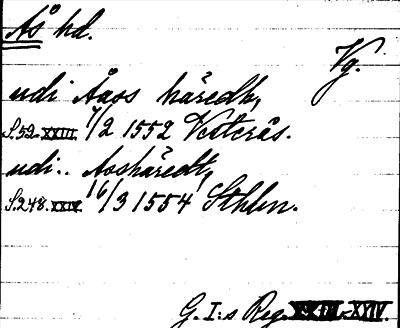 Ås hd.
Vg.
udi Åaas häredh,
S. 52. XXIII. 7/2 1552 Vesterås.
udi.. Aoshäredt,
S. 248. XXIV. 16/3 1554 Sthlm.
G. I:s Reg. XXIII-XXIV.